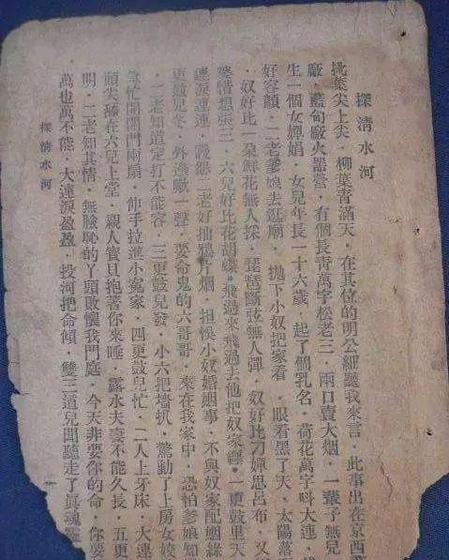 探清水河
桃葉尖上尖．柳葉青滿天．在其位的明公細聽我來言．此事出在京西
廠．藍甸廠火器營．有個長青萬字松老三．兩口賣大烟．一輩子無兒
生一個女嬋娟．女兒年長一十六歲．起了個乳名．荷花萬字呌大連
好容顏．二老爹娘去逛廟．拋下小奴把家看．眼看黑了天．太陽落
．奴好比一朵鮮花無人採．琵琶斷弦無人彈．奴好比刀嬋思呂布．又
婆情想張三．六兒好比花胡蝶．飛過來飛過去他把奴家纏．一更鼓里天
連淚連連．恨怨二老好抽鴉片烟．担悞小奴婚姻事．不與奴家配姻緣
更鼓兒冬．外邊嗽一聲．要命鬼的六哥哥．來在我家中．恐怕爹娘知
．二老知道定打不能容．三更鼓兒發．小六把墻扒．驚動了上房女姣
急忙開開門兩扇．伸手拉進小寃家．四更鼓兒忙．二人上牙床．大連
頭尖搽在六兒上堂．親人寶且抱著你來睡．露水夫妻不能久長．五更
明．二老知其情．無臉恥的丫頭敗懷我門庭．今天非要你的命．你要
萬也萬不能．大連淚盈盈．投河把命傾．雙三道兒聞聽走了眞魂
探清水河